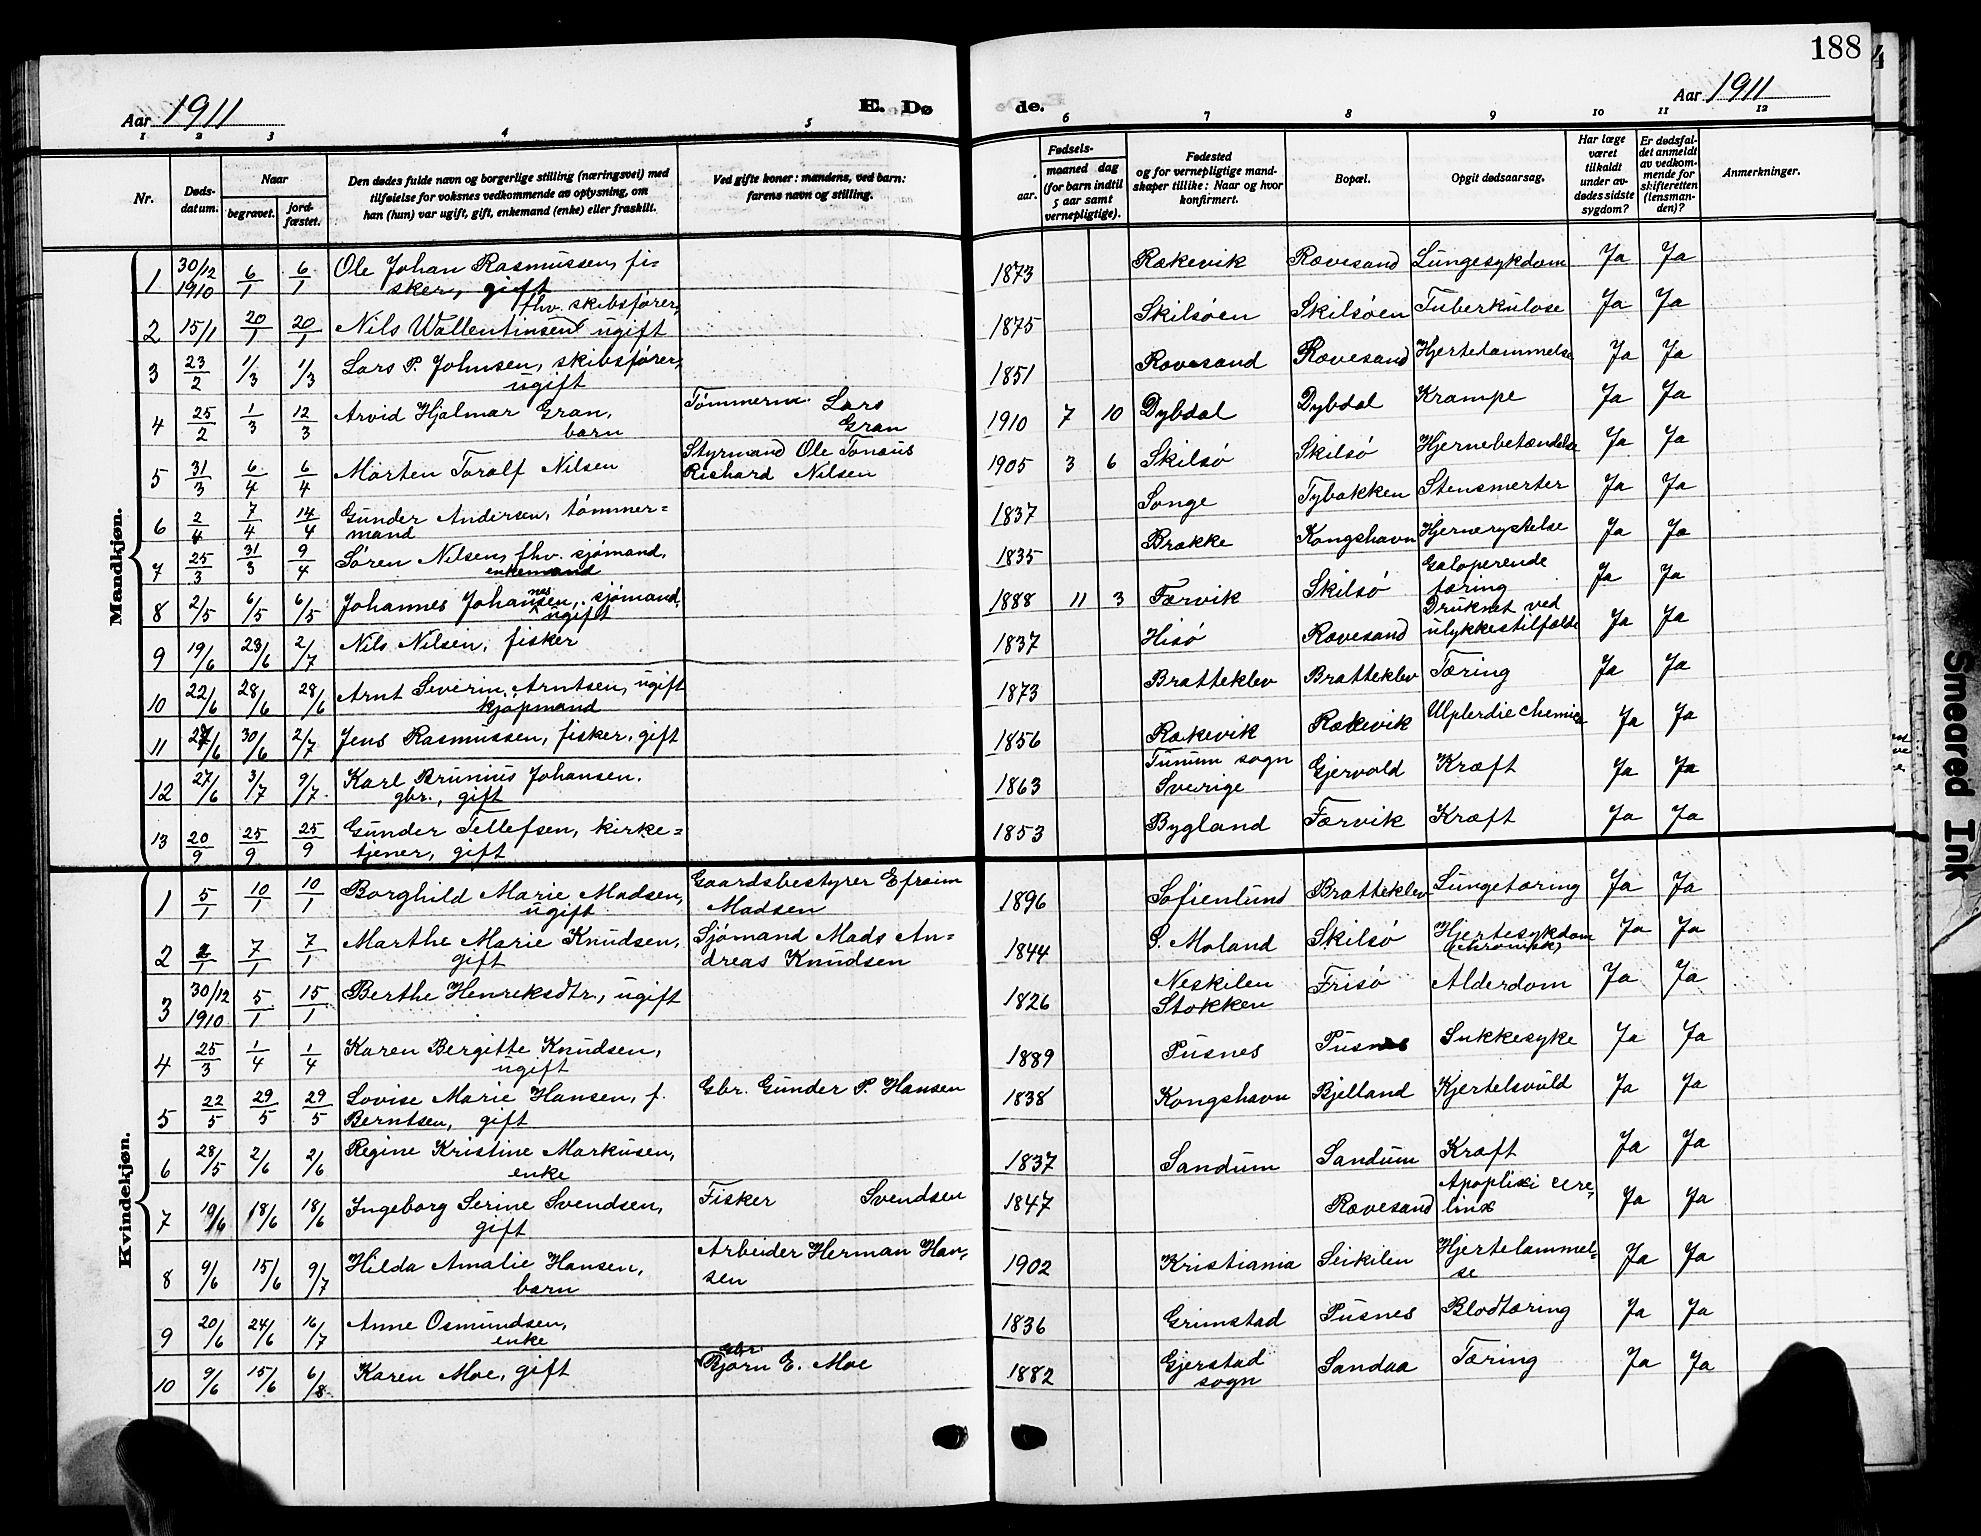 188
4
Aar 1911
E. Dø
de.
Aar 1911
1 2 3 4 5 6 7 8 9 10 11 12
Nr.
Døds-
datum.
Naar
begravet.
jord-
fæstet.
Den dødes fulde navn og borgerlige stilling (næringsvei) med
tilføielse for voksnes vedkommende av oplysning, om
han (hun) var ugift, gift, enkemand (enke) eller fraskilt.
Ved gifte koner: mandens, ved barn:
farens navn og stilling.
Fødsels-
aar.
maaned dag
(for barn indtil
5 aar samt
vernepligtige).
Fødested
og for vernepligtige mand-
skaper tillike: Naar og hvor
konfirmert.
Bopæl.
Opgit dødsaarsag.
Har læge
været
tilkaldt
under av-
dødes sidste
sygdom?
Er dødsfal-
det anmeldt
av vedkom-
mende for
skifteretten
(lensman-
den)?
Anmerkninger.
Mandkjøn.
1 30/12 1910 6/1 6/1 Ole Johan Rasmussen, fi-
sker, gift 1873 Rækevik Rævesand Lungesykdom Ja Ja
fhv. skibsfører,
2 15/1 20/1 20/1 Nils Wallentinsen ugift 1875 Skilsöen Skilsöen Tuberkulose Ja Ja
3 23/2 1/3 1/3 Lars P. Johnsen, skibsfører,
ugift 1851 Rævesand Rævesand Hjertelammelse Ja Ja
4 25/2 1/3 12/3 Arvid Hjalmar Gran,
barn Tömmerm. Lars
Gran 1910 7 10 Dybdal Dybdal Krampe Ja Ja
5 31/3 6/4 6/4 Morten Toralf Nilsen Styrmand Ole Tonæus
Richard Nilsen 1905 3 6 Skilsö Skilsö Hjernebetændelse Ja Ja
6 2/4 7/4 14/4 Gunder Andersen, tömmer=
mand 1837 Songe Tybakken Stensmerter Ja Ja
7 25/3 31/3 9/4 Søren Nilsen, fhv. sjömand,
enkemand 1835 Brække Kongshavn Hjernerystelse Ja Ja
8 2/5 6/5 6/5 Johannes Johannesen, sjömand,
ugift 1888 11 3 Færvik Skilsö Galoperende
tæring Ja Ja
9 19/6 23/6 2/7 Nils Nilsen, fisker 1837 Hisö Rævesand Druknet ved
ulykkestilfælde Ja Ja
10 22/6 28/6 28/6 Arnt Severin Arntsen, ugift
kjöpmand 1873 Bratteklev Bratteklev Tæring Ja Ja
11 27/6 30/6 2/7 Jens Rasmussen, fisker, gift 1856 Rækevik Rækevik Ja Ja
12 27/6 3/7 9/7 Karl Brunius Johansen.
gbr., gift 1863 Tunum sogn
Sverige Gjervold Kræft Ja Ja
13 20/9 25/9 25/9 Gunder Tellefsen, kirke=
tjener, gift 1853 Bygland Færvik Kræft Ja Ja
Kvindekjøn.
1 5/1 10/1 10/1 Borghild Marie Madsen,
ugift Gaardsbestyrer Efraim
Madsen 1896 Sofienlund Bratteklev Lungetæring Ja Ja
2 2/1 7/1 7/1 Marthe Marie Knudsen,
gift Sjömand Mads An=
dreas Knudsen 1844 Ö. Moland Skilsö Hjertesykdom
(chronisk) Ja Ja
3 30/12 1910 5/1 15/1 Berthe Henreksdtr., ugift 1826 Neskilen
Stokken Frisö Alderdom Ja Ja
4 25/3 1/4 1/4 Karen Bergitte Knudsen,
ugift 1889 Pusnes Pusnes Sukkesyke Ja Ja
5 22/5 29/5 29/5 Lovise Marie Hansen, f.
Berntsen, gift Gbr. Gunder P. Hansen 1838 Kongshavn Bjelland Kjertelsvuld Ja Ja
6 28/5 2/6 2/6 Regine Kristine Markusen,
enke 1837 Sandum Sandum Kræft Ja Ja
7 19/6 18/6 18/6 Ingeborg Serine Svendsen,
gift Fisker Svendsen 1847 Rævesand Ja Ja
8 9/6 15/6 9/7 Hilda Amalie Hansen,
barn Arbeider Herman Han-
sen 1902 Kristiania Seikilen Hjertelammel-
se Ja Ja
9 20/6 24/6 16/7 Anne Osmundsen,
enke 1836 Grimstad Pusnes Blodtæring Ja Ja
10 9/6 15/6 6/8 Karen Moe, gift Gbr.
Bjorn E. Moe 1882 Gjerstad
sogn Sandaa Tæring Ja Ja
Smeared Ink